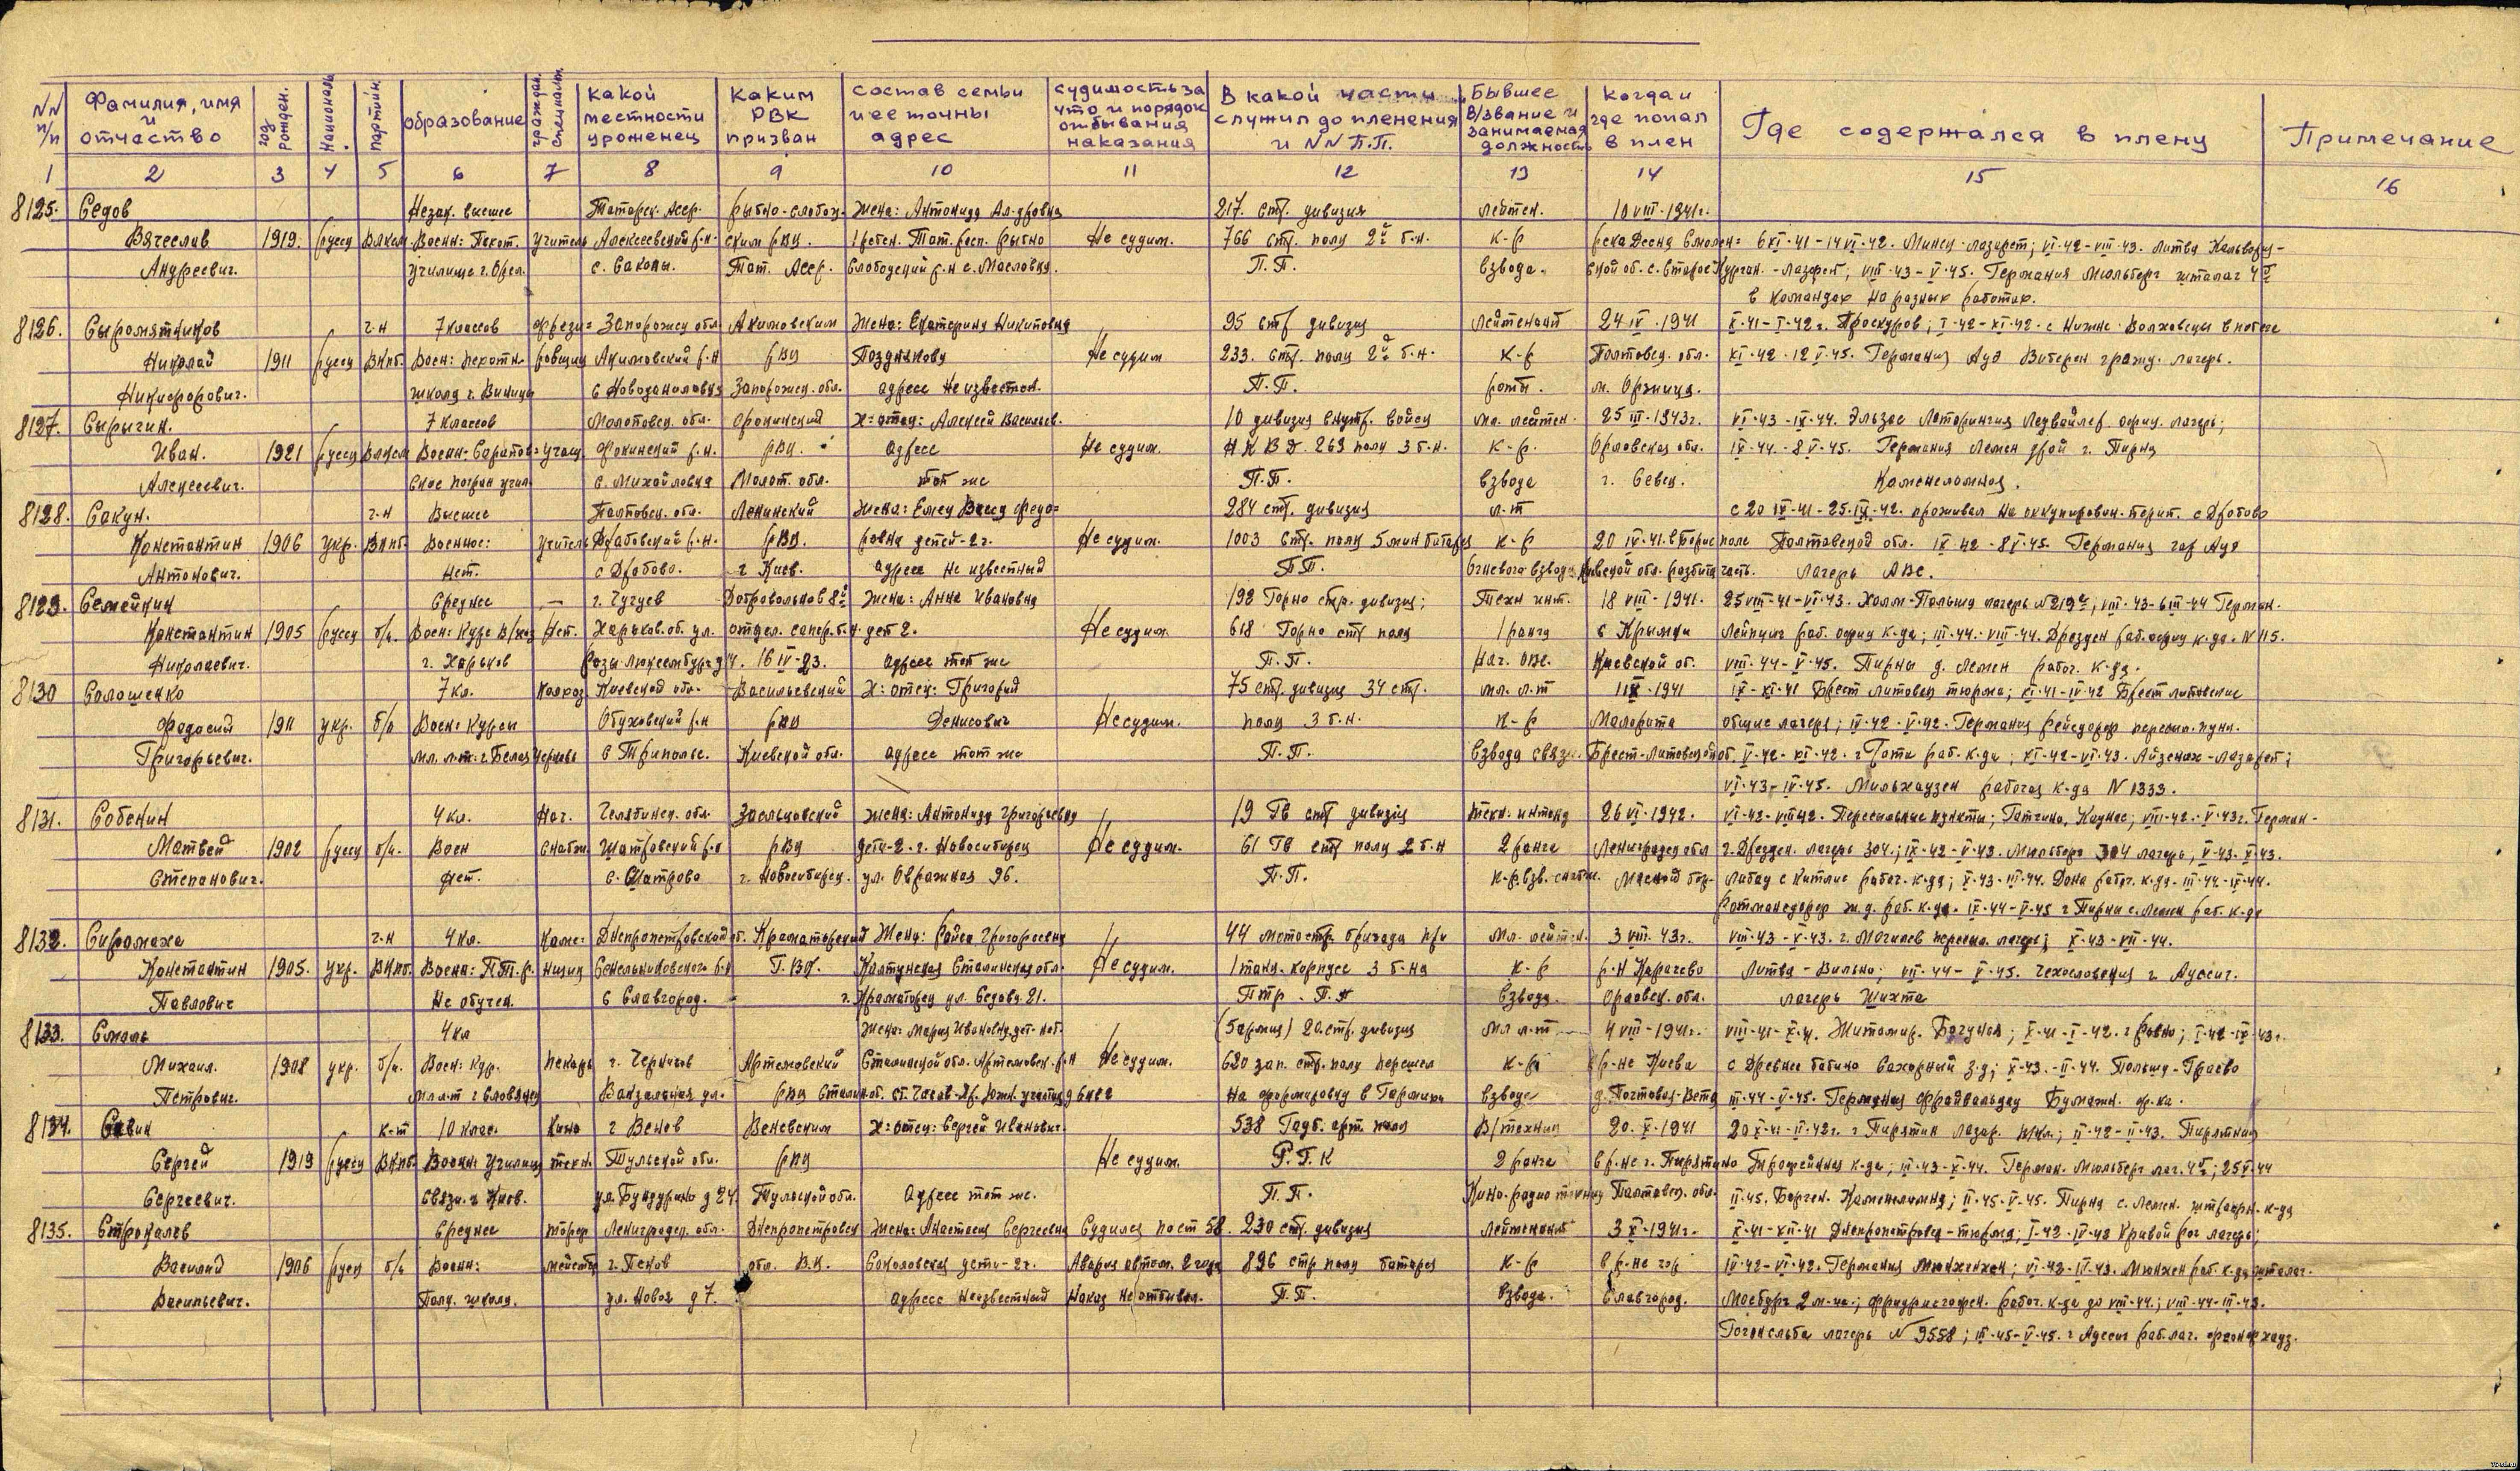 NN п/п | Фамилия, имя и отчество | год рожден. | Национальн. | партийн. | образование | граждан. специальн. | какой местности уроженец | каким РВК призван | состав семьи и ее точны адрес | судимость за что и порядок отбывания наказания | В какой части служил до пленения и NN П.П. | Бывшее в/звание и занимаемая должность | когда и где попал в плен | Где содержался в плену | Примечание
1 2 3 4 5 6 7 8 9 10 11 12 13 14 15 16
8125. Седов Незак. высшее Татарск. Асср. рыбно-слобод- Жена: Антонида Ал-дровна 217. стр. дивизия лейтен. 10 VIII-1941г.
Вячеслав 1919. русск Влксм Военн: Пехот. учитель Алексеевский р.-н. ским РВК. 1 ребен. Тат. респ. рыбно Не судим. 766 стр. полк 2й б.-н. к-р река Десна Смолен= 6 XI-41-14 VI-42. Минск-лазарет; VI-42-VIII-43. Литва Кальвария-
Андреевич. училище г. Орел. с. Саконы. Тат. Асср. слободский р.н с. Масловка. П.П. взвода. ской об. с. Старое Курган.-лазарет; VIII-43-V-45. Германия Мюльберг шталаг 4б
в командах на разных работах.
8126. Сыромятников г.н 7 классов фрезе= Запорожск обл Акимовским Жена: Екатерина Никитовна 95 стр дивизия лейтенант 24 IV-1941 X-41-I-42г. Проскуров; I-42-XI-42. с Нижне-Волковцы в побеге
Николай 1911 русск ВКПб. Воен: пехотн. ровщик Акимовский р.н РВК Позднякова Не судим 233. стр. полк 2й б.-н. к-р Полтовск. обл. XI-42-12 V-45. Германия Ауэ гражд. лагерь.
Никифорович. школа г. Виница с Новоданиловка Запорожск. обл. адресс неизвестен. П.П. роты. м. Оржица.
8127. Сырыгин. 7 классов Молотовск. обл. Фокинский Х=отец: Алексей Васильев. 10 дивизия внутр. войск мл. лейтен. 25 III-1943г. VI-43-IX-44. Эльзас Лотарингия офиц. лагерь;
Иван. 1921 русск Влксм Военн: Саратов= учащ. Фокинский р.н. РВК. адресс Не судим. НКВД. 269 полк 3 б-н. к-р. Орловская обл. IX-44-8 V-45. Германия Лемен г. Пирна
Алексеевич. ское погран учил. с. Михайловка Молот. обл. тот же П.П. взвода г. Севск. Каменеломня.
8128. Сакун. г.н Высшее Полтовск. обл. Ленинский Жена: Федо= 284 стр. дивизия л-т с 20 IX-41-25.IX-42. проживал на оккупирован. терит. с Дробово
Константин 1906 укр. ВКПб. Военное: учитель Драбовский р.н. РВК. ровна детей-2г. Не судим. 1003 стр. полк 5 мин батарея к-р 20 IX-41. в Борис поле Полтавской обл. IX-42-8 V-45. Германия гор Ауэ
Антонович. Нет. с Дробово. г Киев. адресс не известный П.П. Огневого взвода Киевской обл. разбита часть. лагерь АВС.
8129. Семейкин Среднее — г. Чугуев Добровольцов 8й Жена: Анна Ивановна 192 Горно стр. дивизия; Техн инт. 18 VIII-1941. 25 VIII-41-VI-43. Холм-Польша лагерь N 319; VIII-43-6 III-44 Герман.
Константин 1905 русск б/п. Воен: курс Нет. Харьков. об. ул. отдел. сапер. б-н дет 2. Не судим. 618 Горно стр полк 1 ранга с Крымки Лейпциг раб. офиц к-да; III-44-VIII-44. Дрезден раб. офиц к-да. N 115.
Николаевич. г. Харьков Розы Люксембург д 4. 16 IV-23. адресс тот же П.П. Нач. ОВС. Киевской об. VIII-44-V-45. Пирна д. Лемен рабоч. к-да.
8130 Салошенко 7 кл. Колхоз Киевской обл. Васильевский Х: отец: Григорий 75 стр. дивизия 34 стр. мл. л-т 1941 IX-XI-41 Брест литовск тюрма; XI-41-IV-42 Брест литовские
Федосий 1911 укр. б/п Воен: курсы Обуховский р.н РВК Денисович Не судим. полк 3 б.-н. к-р Малорита общие лагеря; IV-42-V-42. Германия пересыл. пунк.
Григорьевич. мл. л-т. г. Белая Церковь с Триполье. Киевской обл. адресс тот же П.П. взвода связи. Брест-Литовской об. V-42-XI-42. г Гота раб. к-да; XI-42-VI-43. Айзенах-лазарет;
VI-43-IV-45. Мильхаузен рабочая к-да N 1333.
8131. Собенин 4 кл. Нач. Челябинск. обл. Заельцовский Жена: Антонида Григорьевна 19 Гв стр дивизия техн. интенд 26 VI-1942. VI-42-VIII 42. Пересыльные пункты; Гатчина, Каунас; VIII-42-V-43г. Герман-
Матвей 1902 русск б/п. Воен снабж. Шатровский р-н РВК дети-2. г. Новосибирск Не судим. 61 Гв стр полк 2 б.-н 2 ранга Ленинградск обл г. Дрезден. лагерь 304.; IX-42-V-43. Мюльберг 304 лагерь, V-43-X-43.
Степанович. Нет. с. Шатрово г. Новосибирск. ул. Овражная 96. П.П. к-р взв. снабж. Мясной бор. рабоч. к-да; X-43-III-44. Дона рабоч. к-да. III-44-IX-44.
ж.д. раб. к-да. IX-44-V-45 г Пирна с. Лемен раб. к-да
8132. Сиромаха г.н 4 кл. Каме= Днепропетровской об. Краматорский Жена: Раиса Григорьевна 44 мотостр. бригада при Мл. лейтен. 3 VIII-43г. VIII-43-X-43. г. Могилев пересыл. лагерь; X-43-VII-44.
Константин 1905. укр. ВКПб. Военн: нщик Сенельниковского р.н Г.ВК. Сталинская обл. Не судим. 1 танк. корпусс 3 б-на к-р р.н Карачево Литва-Вильно; VII-44-V-45. Чехословакия г. Ауссиг.
Павлович Не обучен. с Славгород. г. Краматорск ул. Седова 21. Птр. П.П взвода. Орловск. обл. лагерь Шихта
8133. Смаль 4 кл Жена: Мария Ивановна, дет-нет. (5 армия) 20. стр. дивизия Мл л-т 4 VIII-1941г. VIII-41-X-41. Житомир. Богунья; X-41-I-42. г Ровно; I-42-IX 43г.
Михаил. 1908 укр. б/п. Воен: кур. пекарь г. Чернигов Артемовский Сталинской обл. Артемовск. р.н Не судим. 630 зап. стр. полк перешел к-р в р-не Киева с Древнее бабино Сахарный з-д; X-43-II-44. Польша-Граево
Петрович. мл л-т г Словянск Вокзальная ул. РВК Сталин об. ст. Часов-Яр. Южн. участок д на формировку в Гармаки взвода д. Почтовая-Вета III-44-V-45. Германия Бумажн. ф-ка.
8134. Савин к-т 10 клас. Кино г Венев Веневским Х=отец: Сергей Иванович. 538 Гауб. арт. полк В/техник 20. X-1941 20 X-41-II-42г. г Пирятин лазар. II-42-II-43. Пирятин
Сергей 1919 русск ВКПб. Военн: Училищ техн. Тульской обл. РВК Не судим. Р.Г.К 2 ранга в р-не г. Пирятино Трофейная к-да; III-43-X-44. Герман. Мюльберг лаг. 4б; 25 V-44
Сергеевич. связи. г. Киев. ул. Бундурино д 24 Тульской обл. Адресс тот же. П.П. Кино-радио техник Палтовск. обл. II-45. Каменеломня; II-45-V-45. Пирна с. Лемен. штрафн. к-да
8135. Строкалев Среднее Ленинградск. обл. Днепропетровск Жена: Анастасия Сергеевна Судился по ст 58. 230 стр. дивизия Лейтенант 3 X-1941г. X-41-XII-41 Днепропетровск-тюрма; I-42-IV-42 Кривой рог лагерь;
Василий 1906 русск б/п Военн: мейстер г. Псков обл. В.К. Соколовская дети-2г. Авария автом. 2 года 896 стр полк батарея к-р в р-не гор IV-42-VI-42. Германия Мюнхенхен; VI-42-IV-43. Мюнхен раб. к-да, шталаг.
Васильевич. Полк. школа. ул. Новая д 7. адресс неизвестный наказ не отбывал. П.П. взвода. Славгород. Мосбург 2 м-ца.; рабоч. к-да до VIII-44.; VIII-44-III-45.
лагерь N 9558; III-45-V-45. г раб. лаг.